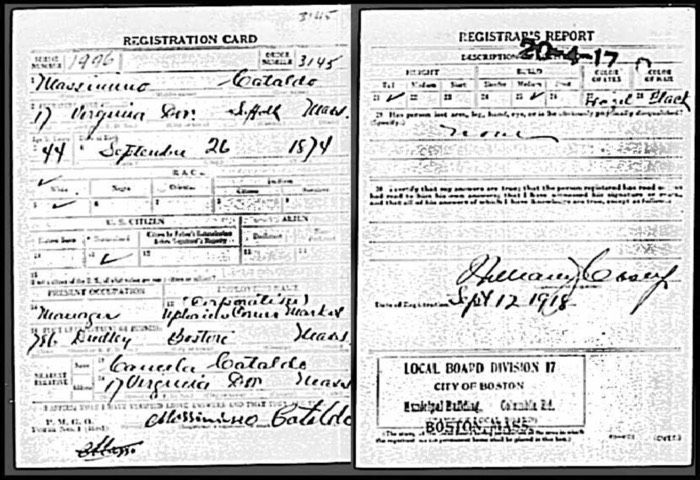 3145
REGISTRATION CARD
SERIAL NUMBER 1996 ORDER NUMBER 3145
Massimino Cataldo
17 Virginia Dor. Suffolk Mass.
44 September 26 1874
RACE
White Negro Oriental
Citizen
5 ✓ 6 7 8 9
U. S. CITIZEN ALIEN
Native Born Naturalized Citizen by Father's Naturalization Before Registrant's Majority Declarant Non-declarant
10 11 ✓ 12
15
If not a citizen of the U. S., of what nation are you a citizen or subject?
PRESENT OCCUPATION EMPLOYER'S NAME
(Corporation)
Manager Uphams Corner Market
Dudley Boston Mass
NEAREST RELATIVE Name Cataldo
Address 17 Virginia Dor. Mass
I AFFIRM THAT I HAVE VERIFIED ABOVE ANSWERS AND THAT THEY ARE TRUE
P. M. G. O.
Form No. 1 (Red)
Massimino Cataldo
REGISTRAR'S REPORT
20-4-17
DESCRIPTION
HEIGHT BUILD COLOR OF EYES COLOR OF HAIR
Tall Medium Short Slender Medium Stout
21 ✓ 22 23 24 25 ✓ 26 Hazel Black
29 Has person lost arm, leg, hand, eye, or is he obviously physically disqualified?
(Specify.)
none
30 I certify that my answers are true; that the person registered has read or has
had read to him his own answers; that I have witnessed his signature or mark,
and that all of his answers of which I have knowledge are true, except as follows:
William J Casey
Date of Registration Sept 12 1918
LOCAL BOARD DIVISION 17
CITY OF BOSTON
Municipal Building, Columbia Rd.
BOSTON, MASS.